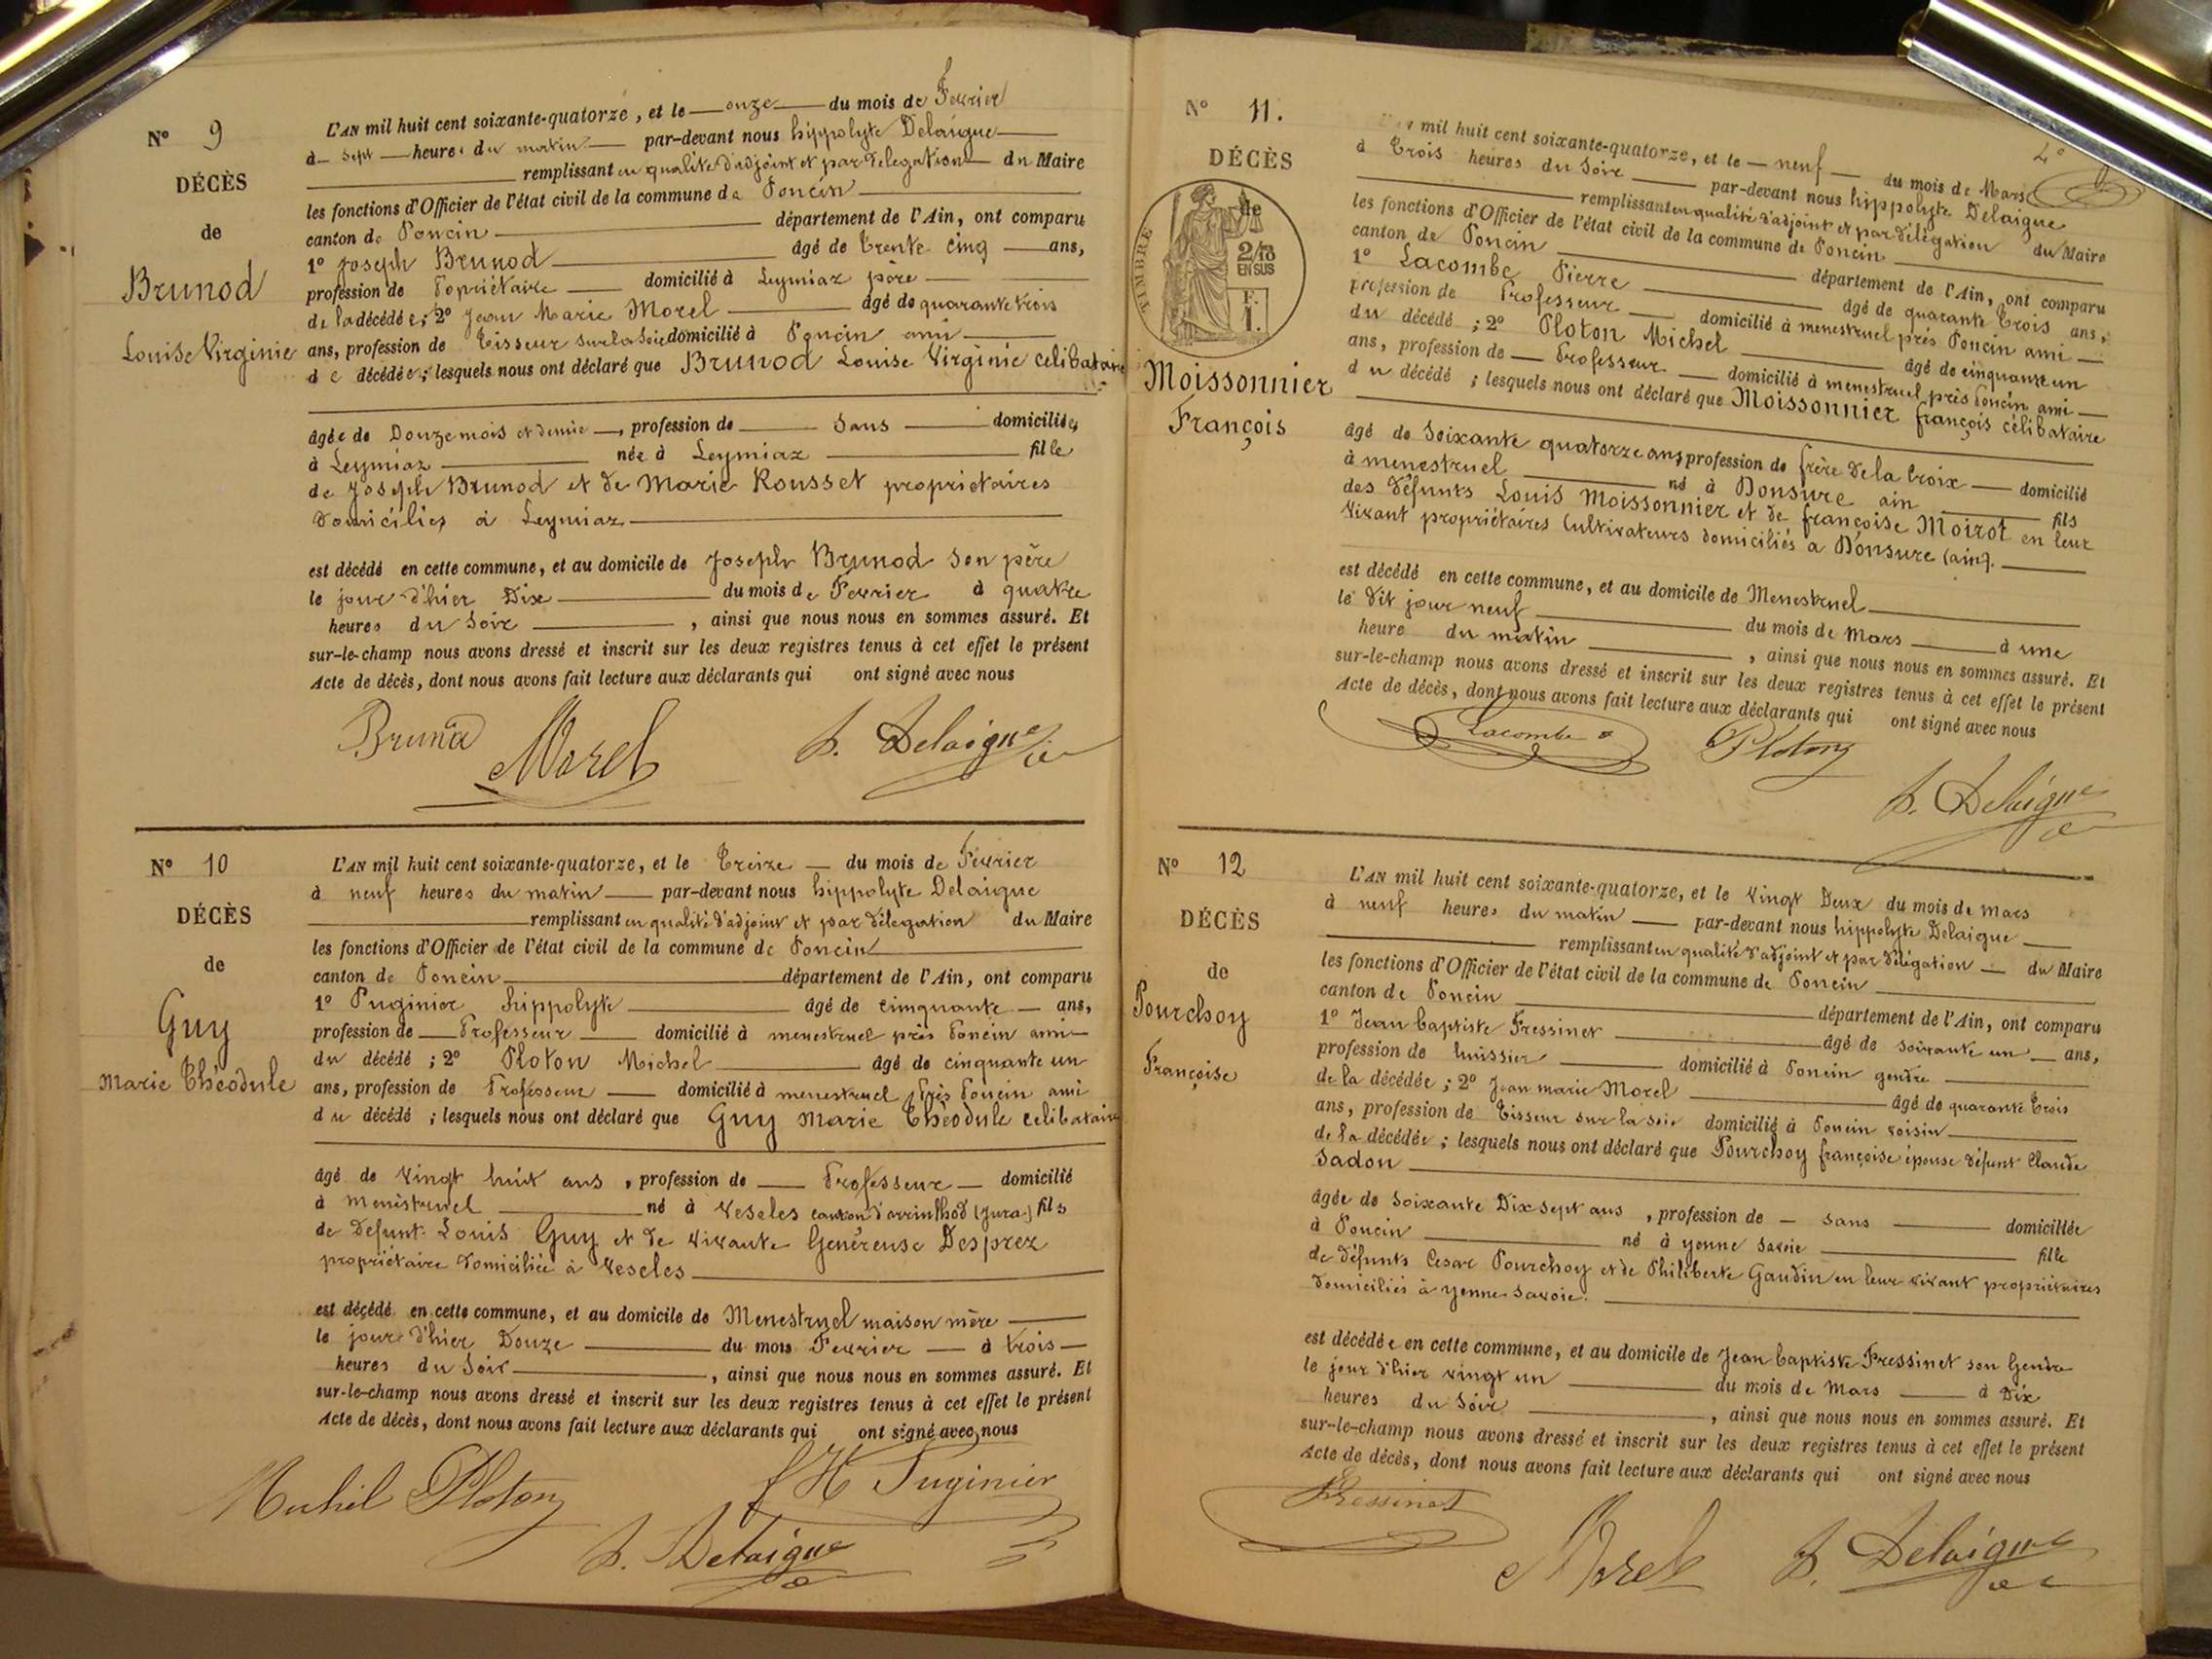 N° 9
DÉCÈS
de
Brunod
Louise Virginie
L'AN mil huit cent soixante-quatorze, et le onze du mois de Fevrier
à sept heures du matin par-devant nous hippolyte Delaigue
remplissant en qualité d'adjoint et par délégation du Maire
les fonctions d'Officier de l'état civil de la commune de Poncin
canton de Poncin département de l'Ain, ont comparu
1° Joseph Brunod âgé de trente cinq ans,
profession de Popriétaire domicilié à Leymiaz père
de la décédée; 2° Jean Marie Morel âgé de quarante trois
ans, profession de Tisseur sur la Soie domicilié à Poncin ami
de décédée; lesquels nous ont déclaré que Brunod Louise Virginie célibataire
âgée de Douze mois et demie, profession de Sans domiciliée
à Leymiaz née à Leymiaz fille
de Joseph Brunod et de Marie Rousset propriétaires
domiciliés à Leymiaz
est décédé en cette commune, et au domicile de Joseph Brunod son père
le jour d'hier Dix du mois de Fevrier à quatre
heures du Soir, ainsi que nous nous en sommes assuré. Et
sur-le-champ nous avons dressé et inscrit sur les deux registres tenus à cet effet le présent
Acte de décès, dont nous avons fait lecture aux déclarants qui ont signé avec nous
Brunod Morel h. Delaigue
N° 10
DÉCÈS
de
Guy
Marie Théodule
L'AN mil huit cent soixante-quatorze, et le Treize du mois de Fevrier
à neuf heures du matin par-devant nous hippolyte Delaigue
remplissant en qualité d'adjoint et par délegation du Maire
les fonctions d'Officier de l'état civil de la commune de Poncin
canton de Poncin département de l'Ain, ont comparu
1° Puginier hippolyte âgé de cinquante ans,
profession de Professeur domicilié à menestruel près Poncin ami
du décédé; 2° Ploton Michel âgé de cinquante un
ans, profession de Professeur domicilié à menestruel près Poncin ami
du décédé; lesquels nous ont déclaré que Guy Marie Théodule celibataire
âgé de vingt huit ans, profession de Professeur domicilié
à menestruel né à Vescles canton d'arrinthod (Jura) fils
de defunt Louis Guy et de vivante Genéreuse Desprez
propriétaire domiciliée à Vescles
est décédé en cette commune, et au domicile de Menestruel maison mère
le jour d'hier Douze du mois Fevrier à trois
heures du Soir, ainsi que nous nous en sommes assuré. Et
sur-le-champ nous avons dressé et inscrit sur les deux registres tenus à cet effet le présent
Acte de décès, dont nous avons fait lecture aux déclarants qui ont signé avec nous
Michel Ploton H Puginier
h. Delaigue
N° 11.
DÉCÈS
de
TIMBRE
2/10
EN SUS
F.
1.
Moissonnier
François
mil huit cent soixante-quatorze, et le neuf du mois de Mars
à Trois heures du Soir par-devant nous hippolyte Delaigue
remplissant en qualité d'adjoint et par délégation du Maire
les fonctions d'Officier de l'état civil de la commune de Poncin
canton de Poncin département de l'Ain, ont comparu
1° Lacombe Pierre âgé de quarante trois ans,
profession de Professeur domicilié à menestruel près Poncin ami
du décédé; 2° Ploton Michel âgé de cinquante un
ans, profession de Professeur domicilié à menestruel près Poncin ami
du décédé; lesquels nous ont déclaré que Moissonnier françois célibataire
âgé de Soixante quatorze ans, profession de frère de la Croix domicilié
à menestruel né à Donsure ain fils
des défunts Louis Moissonnier et de françoise Moirot en leur
vivant propriétaires Cultivateurs domiciliés a Donsure (ain).
est décédé en cette commune, et au domicile de Menestruel
le dit jour neuf du mois de Mars à une
heure du matin, ainsi que nous nous en sommes assuré. Et
sur-le-champ nous avons dressé et inscrit sur les deux registres tenus à cet effet le présent
Acte de décès, dont nous avons fait lecture aux déclarants qui ont signé avec nous
Lacombe Ploton
h. Delaigue
N° 12
DÉCÈS
de
Pourchoy
Françoise
L'AN mil huit cent soixante-quatorze, et le vingt Deux du mois de mars
à neuf heures du matin par-devant nous hippolyte Delaigue
remplissant en qualité d'adjoint et par délégation du Maire
les fonctions d'Officier de l'état civil de la commune de Poncin
canton de Poncin département de l'Ain, ont comparu
1° Jean baptiste Fressinet âgé de soixante un ans,
profession de huissier domicilié à Poncin gendre
de la décédée; 2° Jean marie Morel âgé de quarante trois
ans, profession de Tisseur sur la soie domicilié à Poncin voisin
de la décédée; lesquels nous ont déclaré que Pourchoy françoise épouse défunt Claude
Sadon
âgée de Soixante Dix sept ans, profession de sans domiciliée
à Poncin né à yenne Savoie fille
de défunts Cesar Pourchoy et de Philiberte Gaudin en leur vivant propriétaires
domiciliés à yenne Savoie.
est décédée en cette commune, et au domicile de Jean baptiste Fressinet son Gendre
le jour d'hier vingt un du mois de Mars à Dix
heures du Soir, ainsi que nous nous en sommes assuré. Et
sur-le-champ nous avons dressé et inscrit sur les deux registres tenus à cet effet le présent
Acte de décès, dont nous avons fait lecture aux déclarants qui ont signé avec nous
Fressinet Morel h. Delaigue